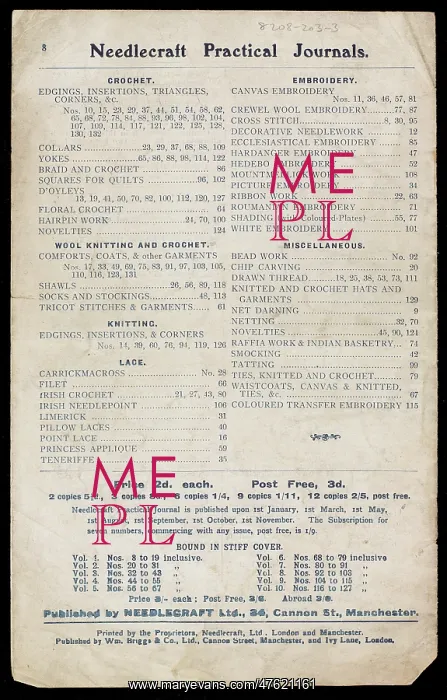 8208-203-3
8
Needlecraft Practical Journals.
CROCHET.
EDGINGS, INSERTIONS, TRIANGLES,
CORNERS, &c.
Nos. 10, 15, 23, 29, 37, 44, 51, 54, 58, 62,
65, 68, 72, 78, 84, 88, 93, 96, 98, 102, 104,
107, 109, 114, 117, 121, 122, 125, 128,
130, 132
COLLARS 23, 29, 37, 68, 88, 109
YOKES 65, 86, 88, 98, 114, 122
BRAID AND CROCHET 86
SQUARES FOR QUILTS 96, 102
D'OYLEYS
13, 19, 41, 50, 70, 82, 100, 112, 120, 127
FLORAL CROCHET 64
HAIRPIN WORK 24, 70, 100
NOVELTIES 124
WOOL KNITTING AND CROCHET.
COMFORTS, COATS, & other GARMENTS
Nos. 17, 33, 49, 69, 75, 83, 91, 97, 103, 105,
110, 116, 123, 131
SHAWLS 26, 56, 89, 118
SOCKS AND STOCKINGS 48, 113
TRICOT STITCHES & GARMENTS 61
KNITTING.
EDGINGS, INSERTIONS, & CORNERS
Nos. 14, 39, 60, 76, 94, 119, 126
LACE.
CARRICKMACROSS No. 28
FILET 66
IRISH CROCHET 21, 27, 43, 80
IRISH NEEDLEPOINT 106
LIMERICK 31
PILLOW LACES 40
POINT LACE 16
PRINCESS APPLIQUE 59
TENERIFFE 35
EMBROIDERY.
CANVAS EMBROIDERY
Nos. 11, 36, 46, 57, 81
CREWEL WOOL EMBROIDERY 77, 87
CROSS STITCH 8, 30, 95
DECORATIVE NEEDLEWORK 12
ECCLESIASTICAL EMBROIDERY 85
HARDANGER EMBROIDERY 47
HEDEBO EMBROIDERY 52
MOUNTMELLICK 108
PICTURE EMBROIDERY 34
RIBBON WORK 22, 63
ROUMANIAN EMBROIDERY 71
SHADING (Coloured Plates) 55, 77
WHITE EMBROIDERY 101
MISCELLANEOUS.
BEAD WORK No. 92
CHIP CARVING 20
DRAWN THREAD 18, 25, 38, 53, 73, 111
KNITTED AND CROCHET HATS AND
GARMENTS 129
NET DARNING 9
NETTING 32, 70
NOVELTIES 45, 90, 124
RAFFIA WORK & INDIAN BASKETRY 74
SMOCKING 42
TATTING 99
TIES, KNITTED AND CROCHET 79
WAISTCOATS, CANVAS & KNITTED,
TIES, &c. 67
COLOURED TRANSFER EMBROIDERY 115
ME
PL
ME
PL
Price 2d. each. Post Free, 3d.
2 copies 3 copies 6 copies 1/4, 9 copies 1/11, 12 copies 2/5, post free.
Needlecraft Practical Journal is published upon 1st January, 1st March, 1st May,
1st August, 1st September, 1st October, 1st November. The Subscription for
seven numbers, commencing with any issue, post free, is 1/9.
BOUND IN STIFF COVER.
Vol. 1. Nos. 8 to 19 inclusive.
Vol. 2. Nos. 20 to 31 "
Vol. 3. Nos. 32 to 43 "
Vol. 4. Nos. 44 to 55 "
Vol. 5. Nos. 56 to 67 "
Vol. 6. Nos. 68 to 79 inclusive
Vol. 7. Nos. 80 to 91 "
Vol. 8. Nos. 92 to 103 "
Vol. 9. Nos. 104 to 115 "
Vol. 10. Nos. 116 to 127 "
Price 3/- each; Post Free, Abroad
Published by NEEDLECRAFT Ltd., Cannon St., Manchester.
Printed by the Proprietors, Needlecraft, Ltd. London and Manchester.
Published by Wm. Briggs & Co., Ltd., Cannon Street, Manchester, and Ivy Lane, London.
www.maryevans.com/47621161